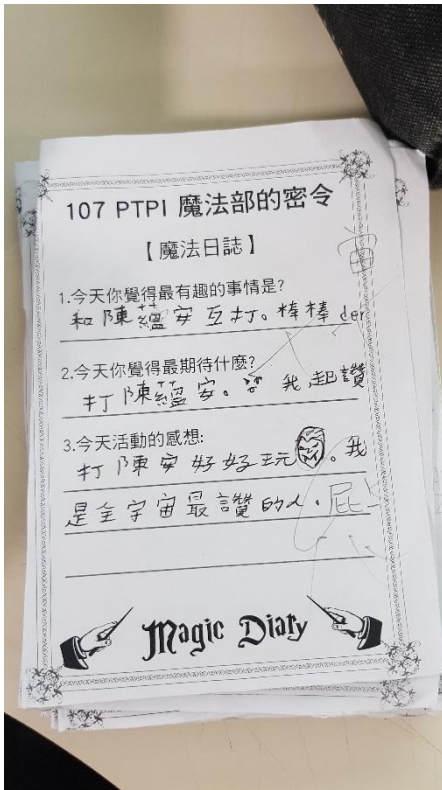 107 PTPI 魔法部的密令
【魔法日誌】
1.今天你覺得最有趣的事情是?
和陳蘊安互打。棒棒der
2.今天你覺得最期待什麼?
打陳蘊安。我超讚
3.今天活動的感想:
打陳安好好玩。我
是全宇宙最讚的人。屁
Magic Diary